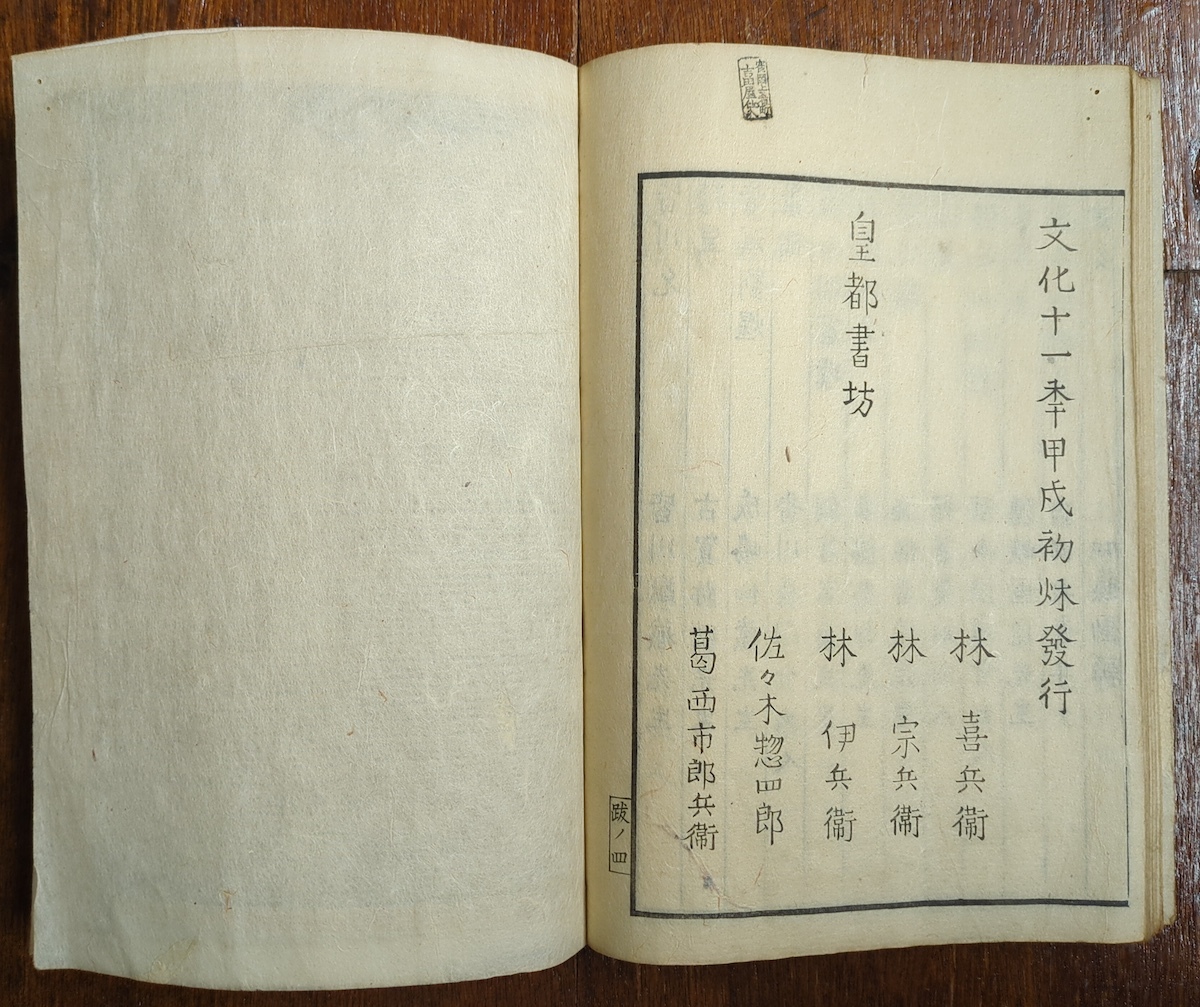 文化十一季甲戌初秌發行
皇都書坊
林 喜兵衞
林 宗兵衞
林 伊兵衞
佐々木惣四郎
葛西市郎兵衞
跋ノ四